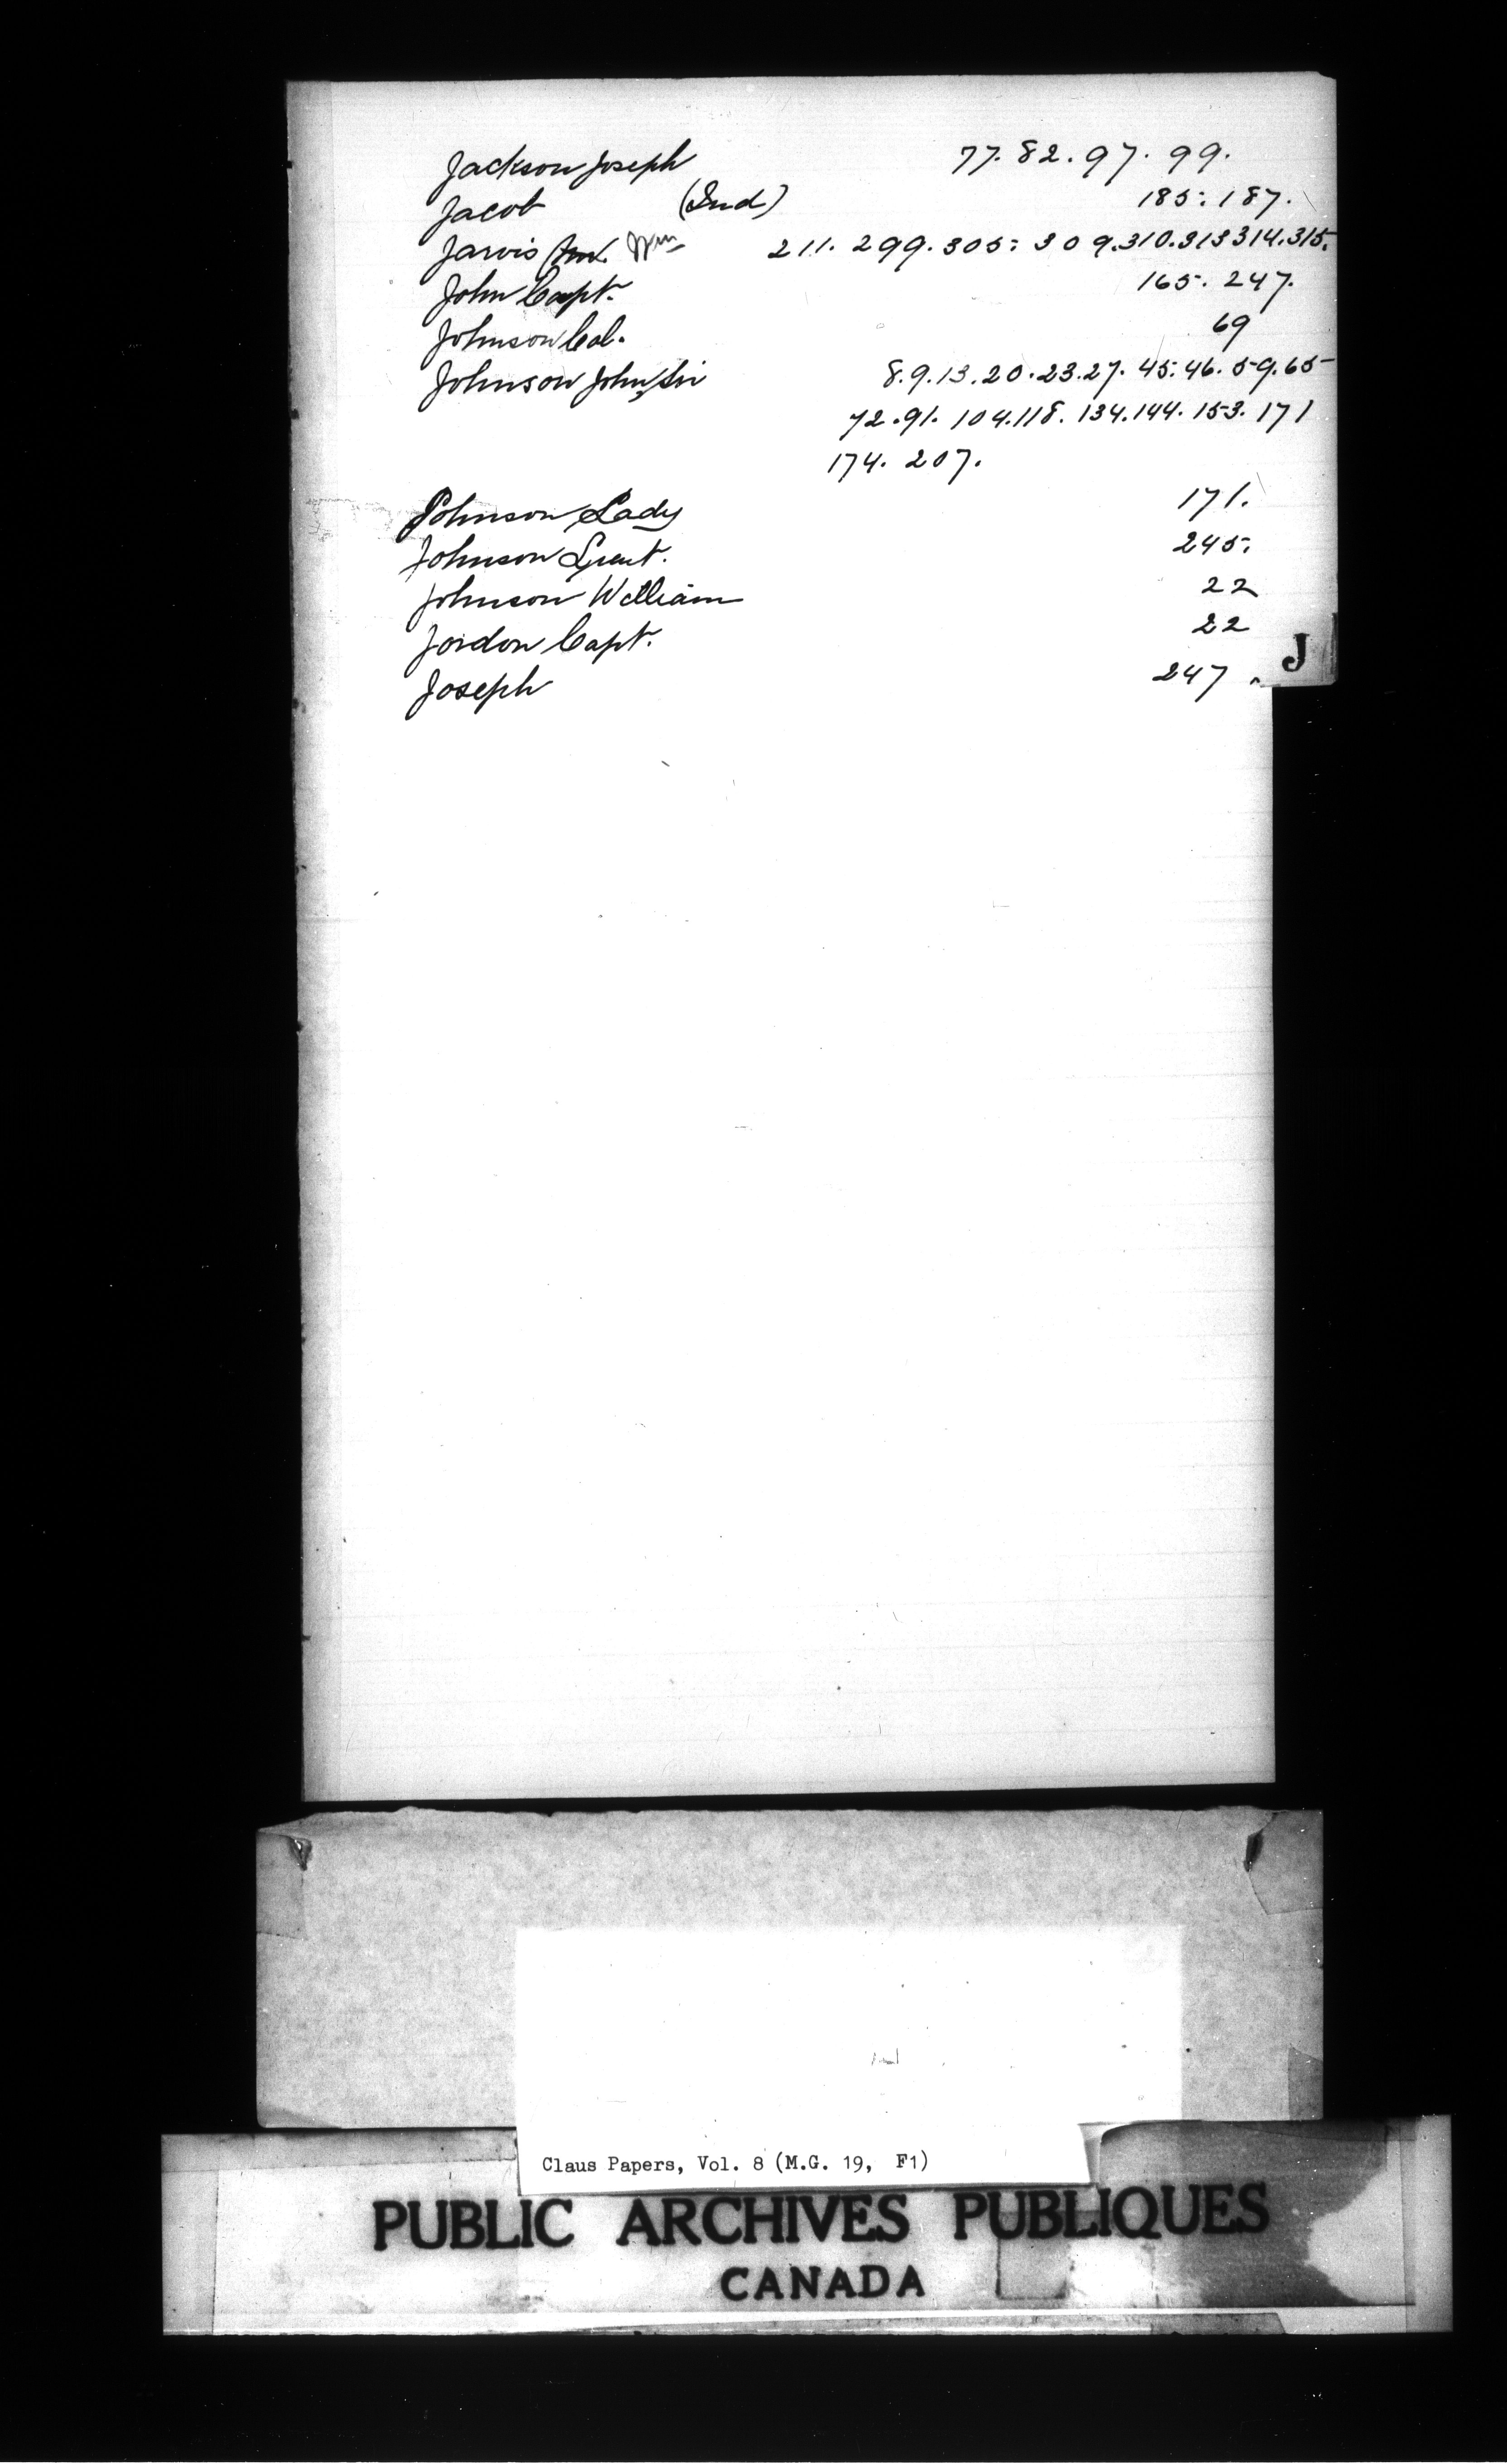 Jackson Joseph 77. 82. 97. 99.
Jacob (Ind) 185. 187.
Jarvis Wm 211. 299. 305. 309. 310. 313 314. 315.
John Capt. 165. 247.
Johnson Col. 69
Johnson John Sir 8. 9. 13. 20. 23. 27. 45. 46. 59. 65
72. 91. 104. 118. 134. 144. 153. 171
174. 207.
Johnson Lady 171.
Johnson Lieut. 245.
Johnson William 22
Jordon Capt. 22
J
Joseph 247.
Claus Papers, Vol. 8 (M.G. 19, F1)
PUBLIC ARCHIVES PUBLIQUES
CANADA